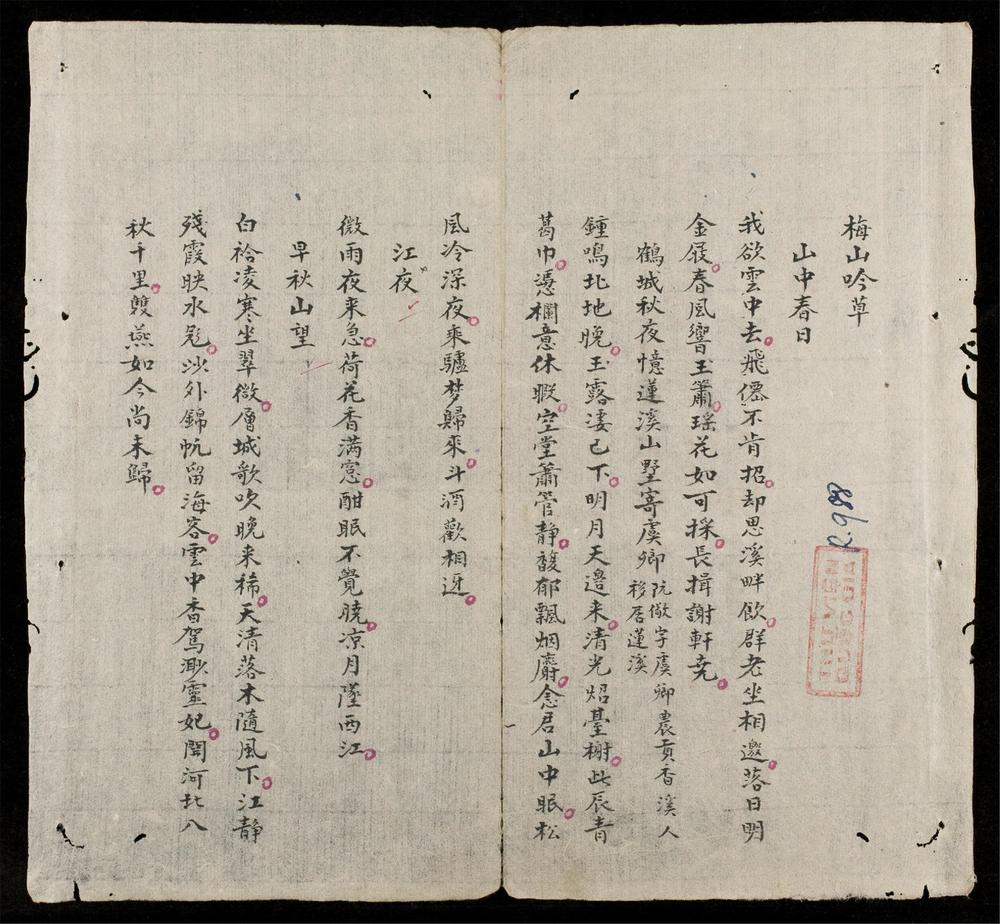 梅山吟草
山中春日
我欲雲中去飛僊不肯招却思溪畔飲群老坐相邀落日明
金屐春風響玉簫瑶花如可採長揖謝軒尭
鶴城秋夜憶蓮溪山墅寄虞卿阮儆字虞卿農貢香溪人
移居蓮溪
鍾鳴北地晚玉露淒已下明月天邉来清光炤臺榭此辰青
葛巾憑欄意休暇空堂蕭管静馥郁飄烟麝念君山中眠松
風冷深夜乘驢梦歸来斗酒歡相迓
江夜
微雨夜来急荷花香满窓酣眠不覺曉凉月墜西江
早秋山望
白袷凌寒坐翠微層城歌吹晚来稀天清落木隨風下江静
殘霞映水飛沙外錦帆留海客雲中香駕渺靈妃関河北八
秋千里雙燕如今尚未歸
R.988
THU VIEN
QUOC GIA